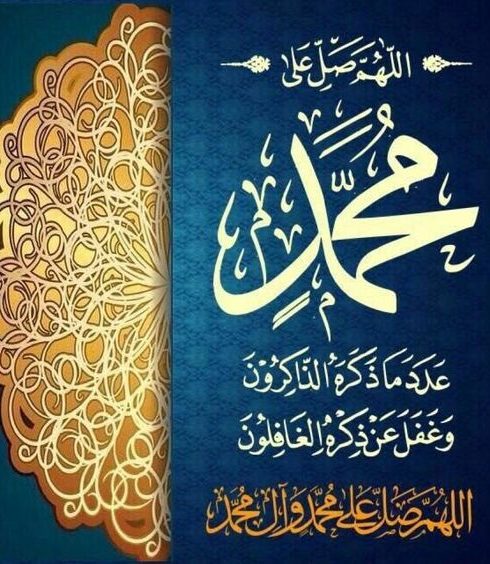 اللَّهُمَّ صَلِّ عَلَى
مُحَمَّدٍ
عَدَدَ مَا ذَكَرَهُ الذَّاكِرُونَ
وَغَفَلَ عَنْ ذِكْرِهِ الغَافِلُونَ
اللهُمَّ صَلِّ عَلَى مُحَمَّدٍ وَآلِ مُحَمَّدٍ